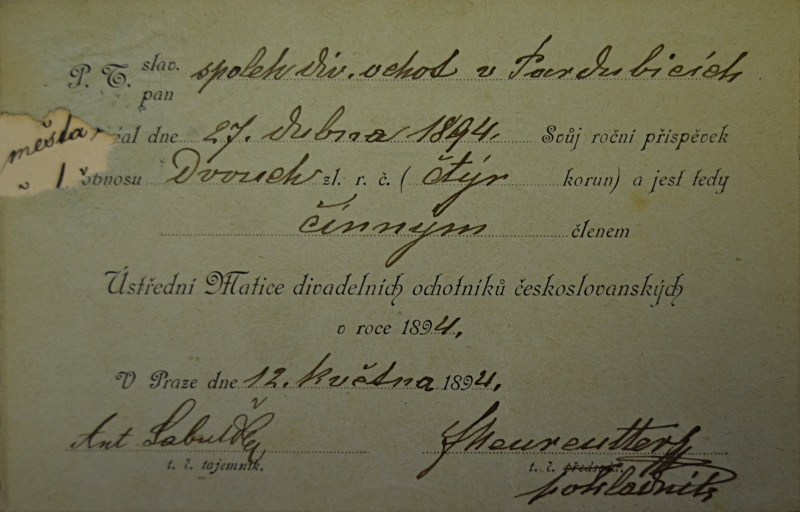 P. T. slav. pan spolek div. ochot v Pardubicích
města
dne 27. dubna 1894. Svůj roční příspěvek
1 obnosu Dvouch zl. r. č. ( čtýr korun) a jest tedy
činným členem
Ústřední Matice divadelních ochotníků českoslovanských
v roce 1894.
V Praze dne 12. května 1894.
Ant
t. č. tajemník. t. č. předseda.
pokladník